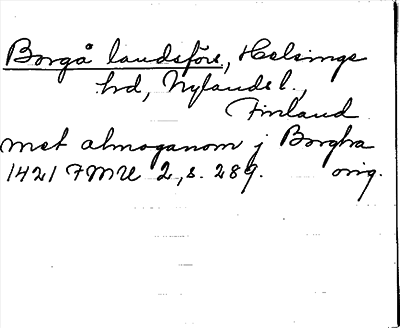 Borgå landsförs, Helsinge
hd, Nylands l.,
Finland
met almoganom j Borgha
1421 FMU 2, s. 289. orig.